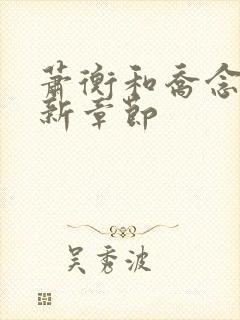 萧衡和乔念
新章节
吴秀波